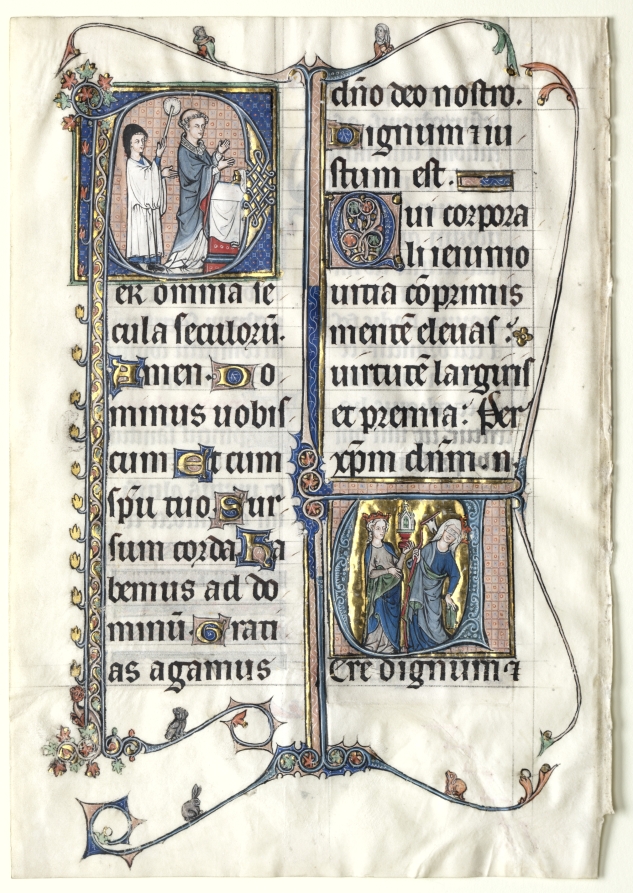 Per omnia se
cula seculorū.
Amen. Do
minus uobis
cum Et cum
sp̄u tuo. Sur
sum corda Ha
bemus ad do
minū. Grati
as agamus
dn̄o deo nostro.
Dignum ⁊ iu
stum est.
Qui corpora
li ieiunio
uitia cōprimis
mentē eleuas:
uirtutē largiris
et premia: Per
xp̄m dn̄m. n.
Vere dignum ⁊